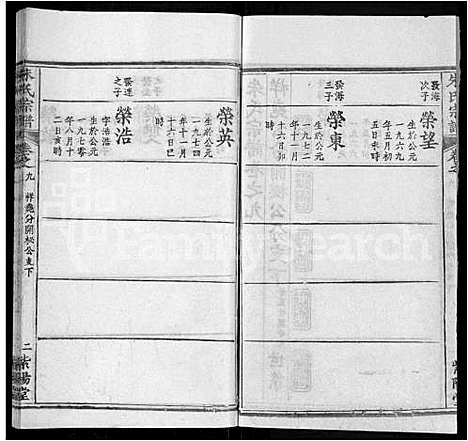 朱氏宗譜
發海
次子
榮望
生於公元
一九六九
年五月初
五日辰時
發海
三子
榮東
生於公元
一九七二
年十一月
十六日卯
時
榮英
生於公元
一九七四
年十一月
十六日巳
時
發達
之子
榮浩
字浩浩
生於公元
一九七零
年八月十
二日亥時
朱氏宗譜
卷之九
祥應分開松公支下
二
紫陽堂
FamilySearch